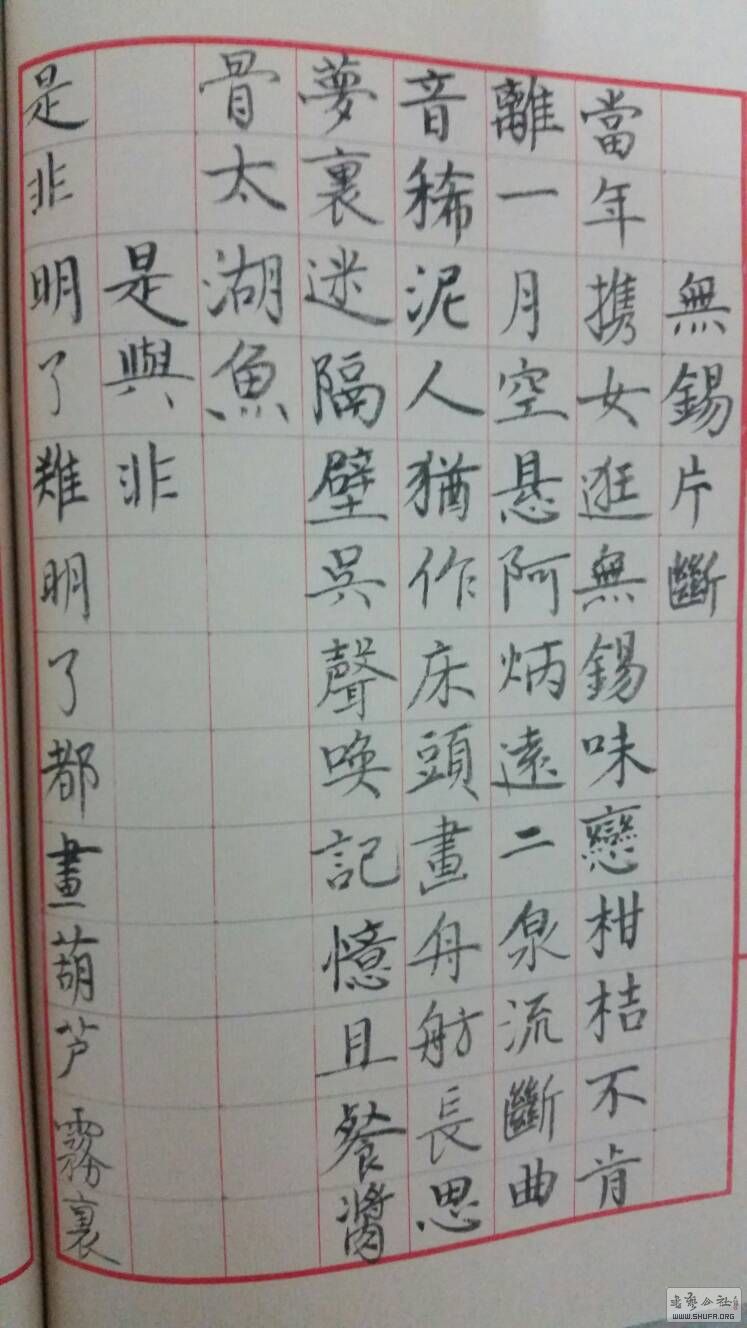 無錫片斷
當年攜女逛無錫味戀柑桔不肯
離一月空悬阿炳遠二泉流斷曲
音稀泥人猶作床頭畫舟舫長思
夢裏迷隔壁吳聲喚記憶且餐醬
骨太湖魚
是與非
是非明了難明了都畫葫芦霧裏
書藝公社
WWW.SHUFA.ORG